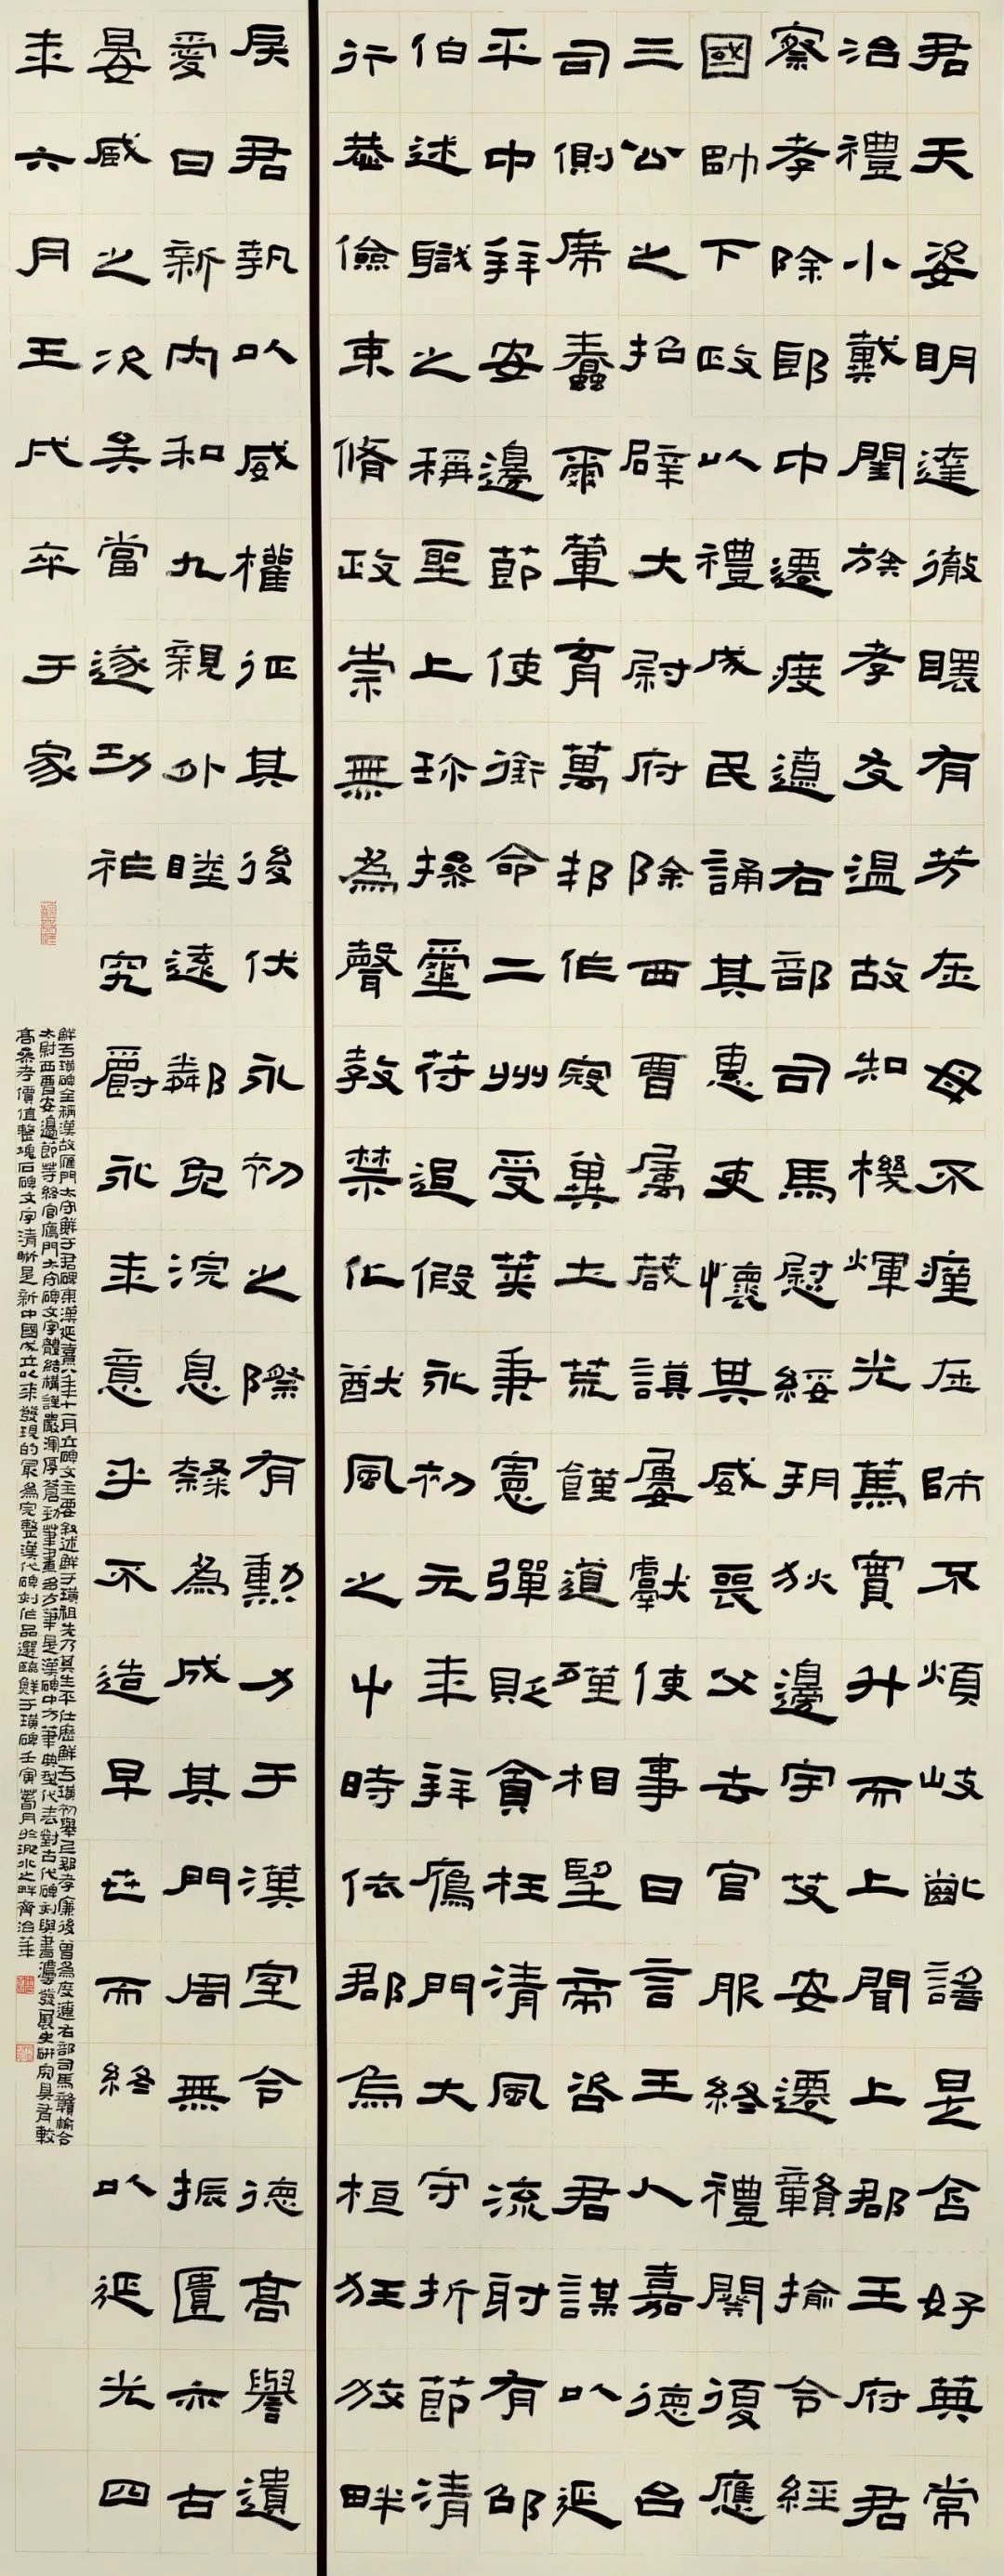 君天姿明達徹曒有芳在母不瘇在師不煩岐齔謠是含好典常
治禮小戴閨族孝友溫故知機煇光篤實升而上聞上郡王府君
察孝除郎中遷度遼右部司馬慰綏朔狄邊宇艾安遷贛揄令經
國帥下政以禮成民誦其惠吏懷其威喪父去官服終禮闋復應
三公之招辟大尉府除西曹屬葴謨屢獻使事日言王人嘉德台
司側席蠢爾葷育萬邦作寇冀土荒饉道殣相望帝咨君謀以延
平中拜安邊節使銜命二州受莢秉憲彈貶貪枉清風流射有邵
伯述職之稱聖上珍操璽符追假永初元年拜鴈門大守折節清
行恭儉束脩政崇無為聲教禁化猷風之中時依郡烏桓狂狡畔
戾君執以威權征其後伏永初之際有勳力于漢室令德高譽遺
愛日新內和九親外睦遠鄰免浣息隸為成其門周無振匱亦古
晏臧之次矣當遂功祚究爵永年意乎不造早世而終以延光四
年六月壬戌卒于家
鮮于璜碑全稱漢故雁門太守鮮于君碑東漢延熹八年十一月立碑文主要叙述鮮于璜祖先乃其生平仕歷鮮于璜初舉上郡孝廉後曾為度遼右部司馬贛榆令
太尉西曹安邊節等終官鴈門太守碑文字體結構謹嚴渾厚蒼勁筆畫多方筆是漢碑中方筆典型代表對古代碑刻與書灋發展史研究具有較
高參考價值整塊石碑文字清晰是新中國成立以來發現的最為完整漢代碑刻作品選臨鮮于璜碑壬寅月於淝水之畔齊治華